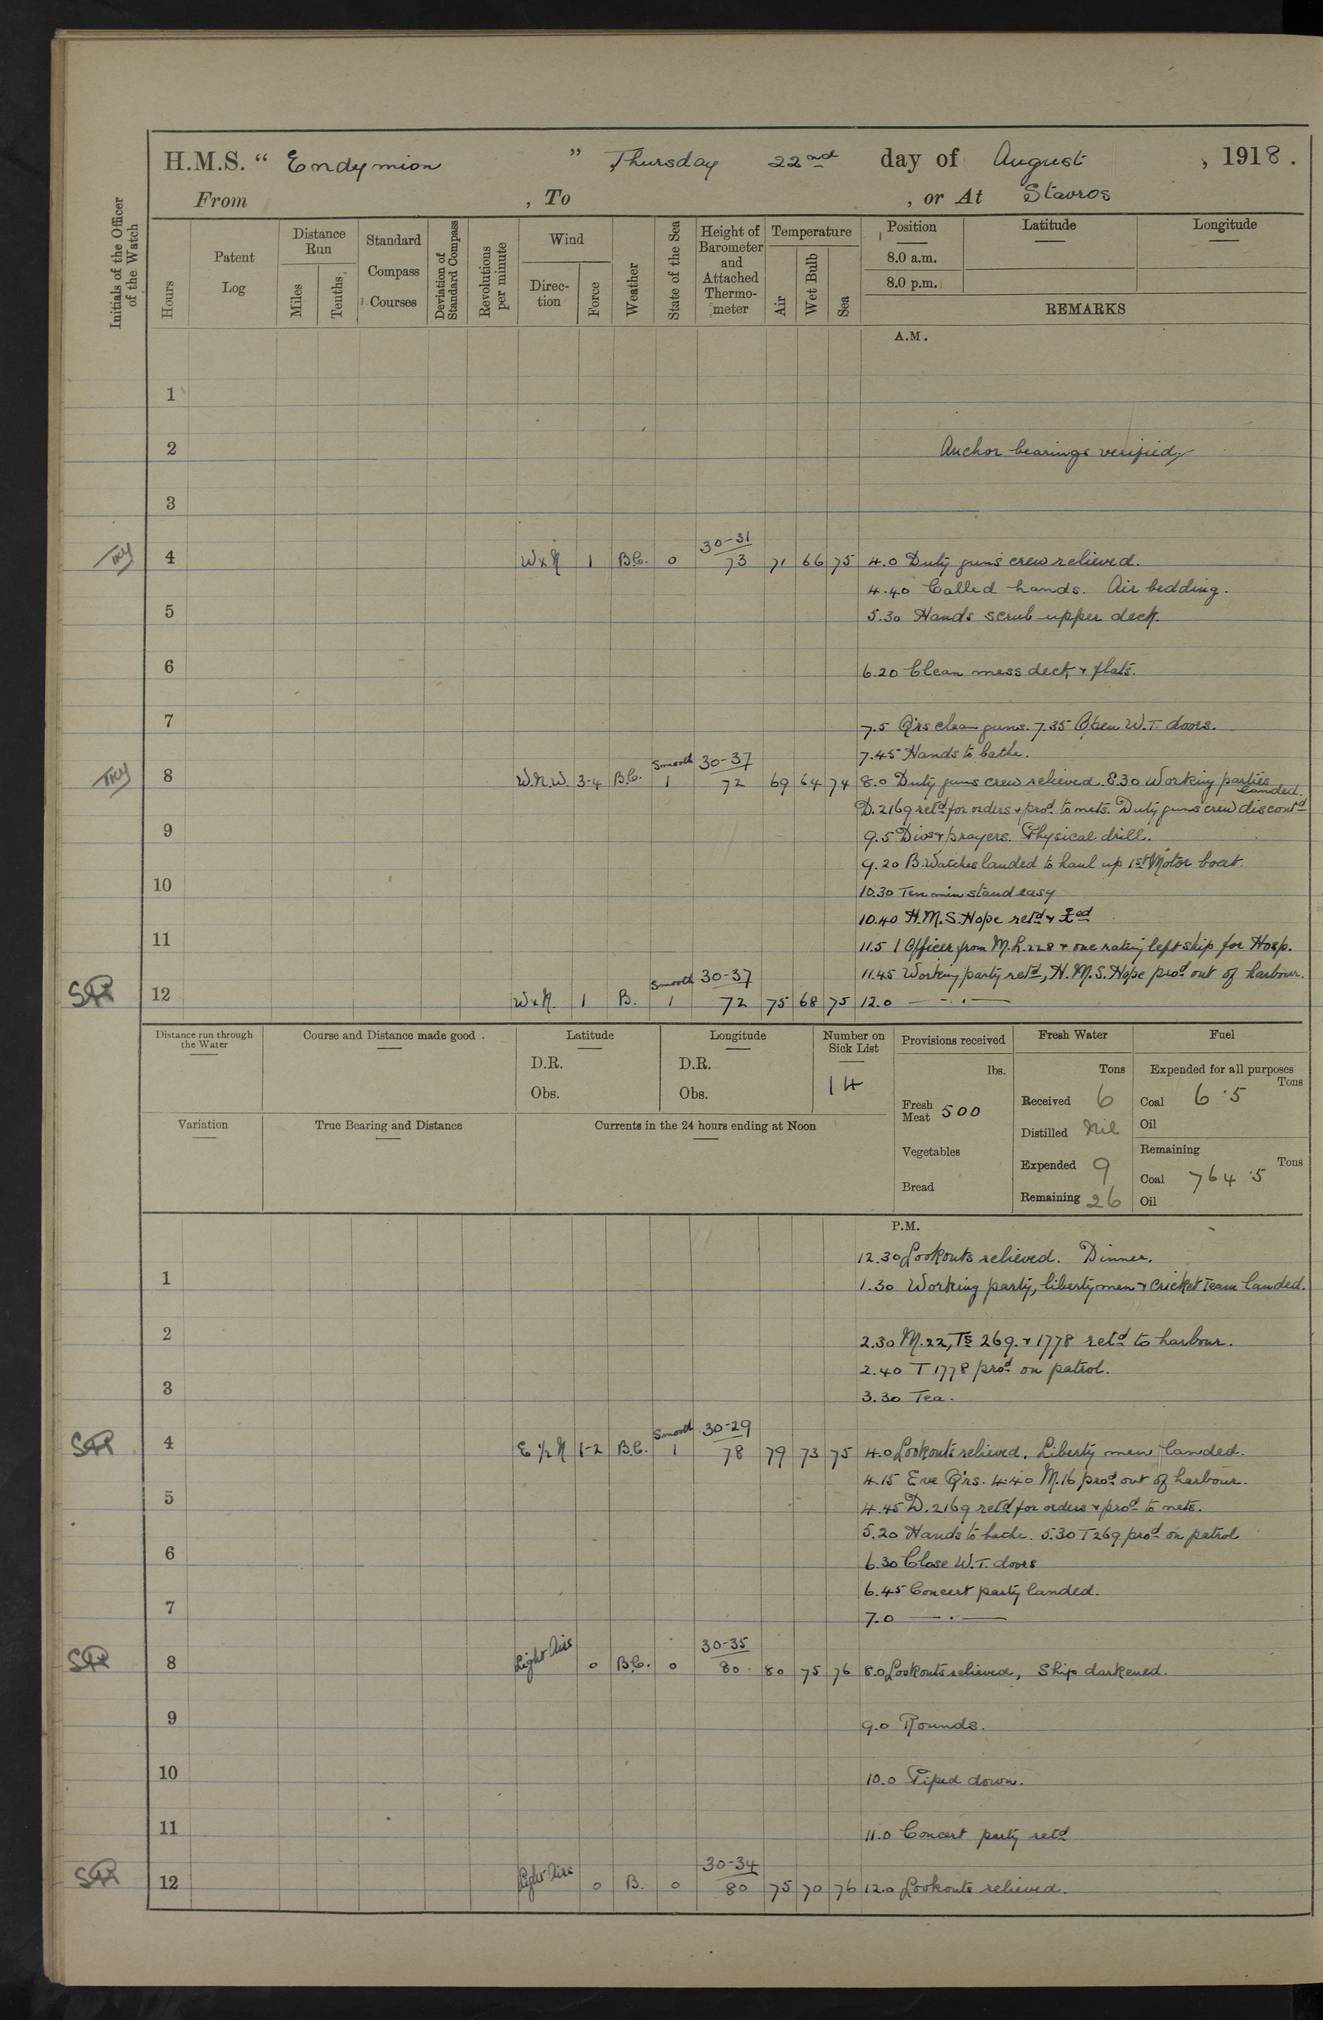 H.M.S. “ Endymion ” Thursday 22nd day of August , 1918 .
From , To , or At Stavros
Initials of the Officer of the Watch
Hours
Patent Log
Distance Run
Miles
Tenths
Standard Compass Courses
Deviation of Standard Compass
Revolutions per minute
Wind
Direc-tion
Force
Weather
State of the Sea
Height of Barometer and Attached Thermo-meter
Temperature
Air
Wet Bulb
Sea
Position
8.0 a.m.
8.0 p.m.
Latitude
Longitude
REMARKS
A.M.
1
2 Anchor bearings verified
3
30-31
4 W x N 1 B.C. 0 73 71 66 75 4.0 Duty guns crew relieved.
4.40 Called hands. Air bedding.
5 5.30 Hands scrub upper deck.
6 6.20 Clean mess deck + flats.
7 7.5 Qrs clean guns. 7.35 Open W.T. doors.
7.45 Hands to bathe.
Smooth 30-37
8 W.N.W. 3-4 B.C. 1 72 69 64 74 8.0 Duty guns crew relieved. 8.30 Working parties landed.
D. 2169 retd for orders + prod to nets. Duty guns crew discontd
9 9.5 Divs + prayers. Physical drill.
9.20 B. Watches landed to haul up 1st Motor boat.
10 10.30 Ten min stand easy
10.40 H.M.S. Hope retd +
11 11.5 1 Officer from M.L. 228 + one rating left ship for Hosp.
11.45 Working party retd, H.M.S. Hope prod out of harbour.
Smooth 30-37
12 W x N. 1 B. 1 72 75 68 75 12.0 — . —
Distance run through the Water
Course and Distance made good .
Latitude
D.R.
Obs.
Longitude
D.R.
Obs.
Number on Sick List
14
Variation
True Bearing and Distance
Currents in the 24 hours ending at Noon
Provisions received
lbs.
Fresh Meat 500
Vegetables
Bread
Fresh Water
Tons
Received 6
Distilled Nil
Expended 9
Remaining 26
Fuel
Expended for all purposes
Tons
Coal 6.5
Oil
Remaining
Tons
Coal 764.5
Oil
P.M.
12.30 Lookouts relieved. Dinner.
1 1.30 Working party, liberty men + Cricket Team landed.
2 2.30 M.22, Ts 269. + 1778 retd to harbour.
2.40 T 1778 prod on patrol.
3 3.30 Tea.
Smooth 30-29
4 E ½ N 1-2 B.C. 1 78 79 73 75 4.0 Lookouts relieved. Liberty men landed.
4.15 Eve Qrs. 4.40 M.16 prod out of harbour.
5 4.45 D. 2169 retd for orders + prod to nets.
5.20 Hands to bathe. 5.30 T 269 prod on patrol
6 6.30 Close W.T. doors
6.45 Concert party landed.
7 7.0 — . —
30-35
8 Light Airs 0 B.C. 0 80 80 75 76 8.0 Lookouts relieved, Ship darkened.
9 9.0 Rounds.
10 10.0 Piped down.
11 11.0 Concert party retd
30-34
12 Light Airs 0 B. 0 80 75 70 76 12.0 Lookouts relieved.